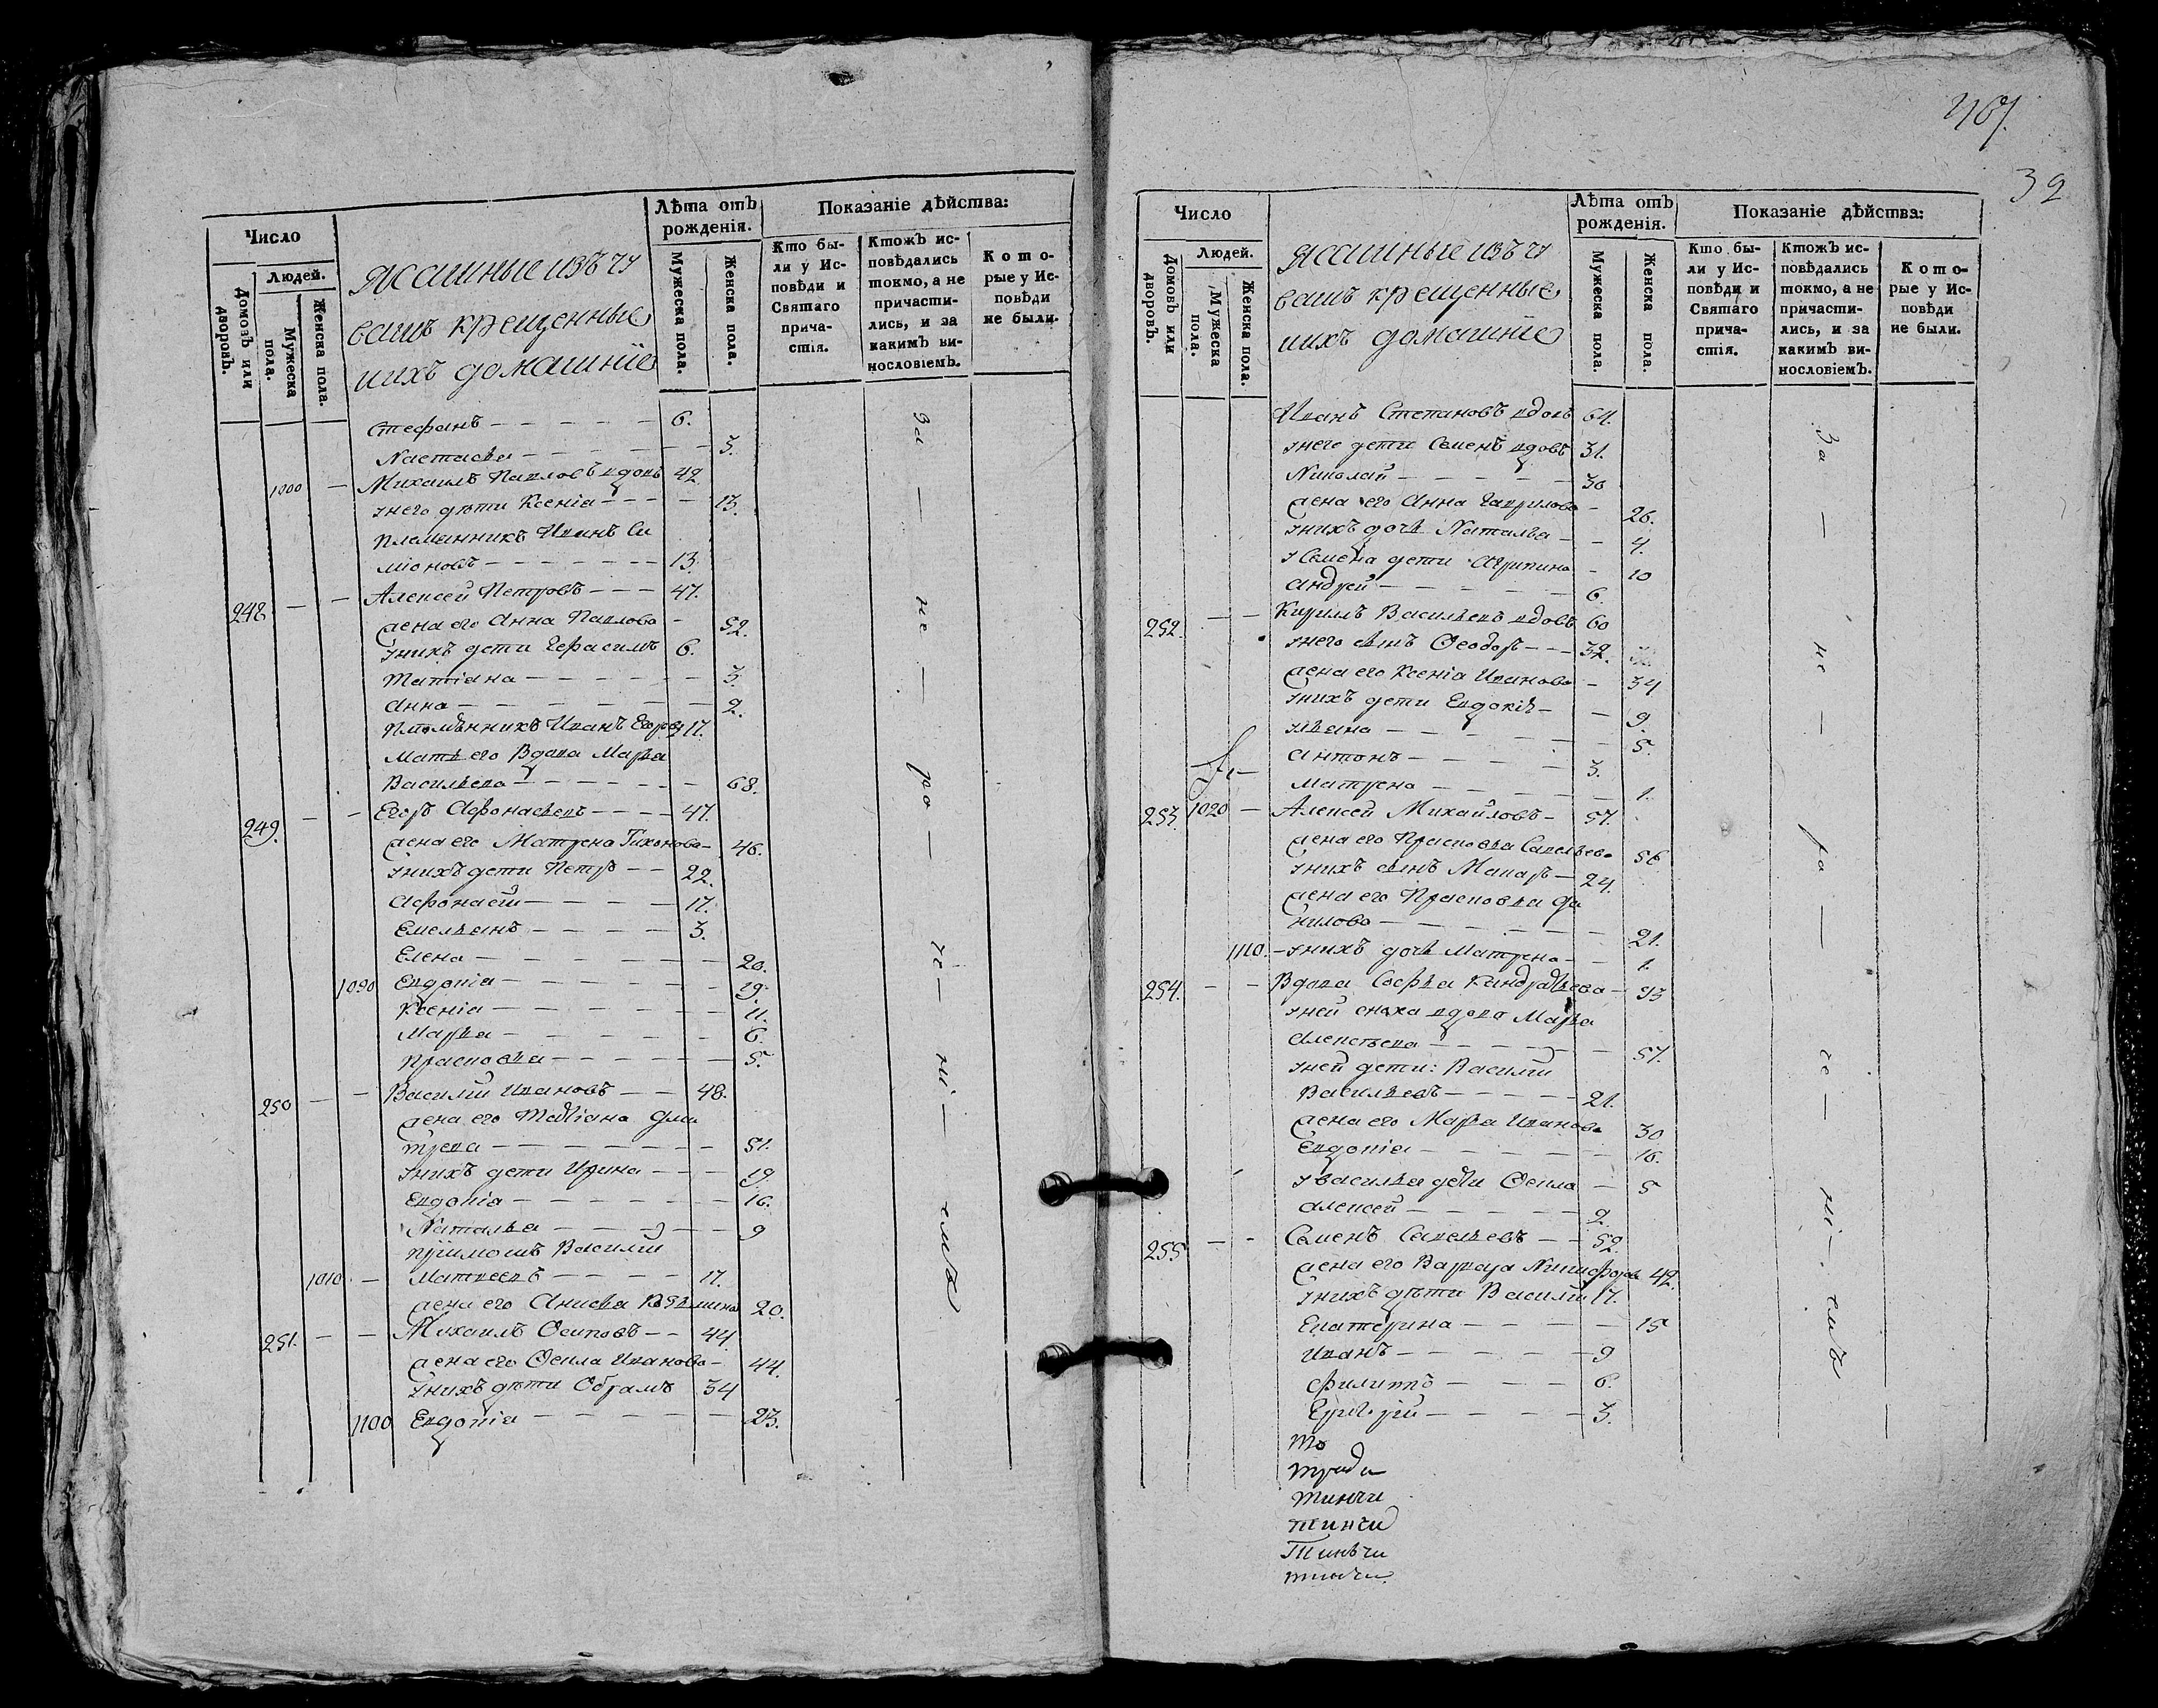 Число
Людей.
Домовъ или дворовъ.
Мужеска пола.
Женска пола.
Ясашные изъ чу
вашъ крещенные
ихъ домашніе
Лѣта отъ рожденія.
Мужеска пола.
Женска пола.
Показаніе дѣйства:
Кто бы-
ли у Ис-
повѣди и
Святаго
прича-
стія.
Ктожъ ис-
повѣдались
токмо, а не
причасти-
лись, и за
какимъ ви-
нословіемъ.
Кото-
рые у Ис-
повѣди
не были.
Стефанъ 6.
Настасья 3.
1000 Михаилъ Павловъ вдовъ 42
у него дѣти Ксенія 13.
племянникъ Иванъ Си
міоновъ 13.
248 Алексей Петровъ 47.
жена его Анна Павлова 52.
у нихъ дети Герасимъ 6.
Татіана 3.
Анна 2.
племянникъ Иванъ Егоровъ 17.
Мать его Вдова Марья
Васильева 68.
249. Егоръ Афонасьевъ 47.
жена его Матрена Тихонова 46.
у нихъ дети Петръ 22.
Афонасей 17.
Емельянъ 3.
Елена 20.
1090 Евдокія 19.
Ксенія 11.
Марья 6.
Прасковья 5.
250 Василій Ивановъ 48.
жена его Татіана Дми
трева 51.
у нихъ дети Ирина 19.
Евдокія 16.
Наталья 9
пріимошъ Василій
1010 Матвеевъ 17.
жена его Анисья Козьмина 20.
251. Михаилъ Осиповъ 44.
жена его Фекла Иванова 44.
у нихъ дѣти Обрамъ 34
1100 Евдокія 23.
за — не — ро — че — ні — емъ
467.
32
Число
Людей.
Домовъ или дворовъ.
Мужеска пола.
Женска пола.
Ясашные изъ чу
вашъ крещенные
ихъ домашніе
Лѣта отъ рожденія.
Мужеска пола.
Женска пола.
Показаніе дѣйства:
Кто бы-
ли у Ис-
повѣди и
Святаго
прича-
стія.
Ктожъ ис-
повѣдались
токмо, а не
причасти-
лись, и за
какимъ ви-
нословіемъ.
Кото-
рые у Ис-
повѣди
не были.
Иванъ Степановъ вдовъ 64.
у него дети Семенъ вдовъ 31.
Николай 30
жена его Анна Гаврилова 26.
у нихъ дочь Наталья 4.
у Семена дети Агрипина 10
Андрей 6.
252. Кирилъ Васильевъ вдовъ 60
у него сынъ Феодоръ 32.
жена его Ксенія Иванова 34
у нихъ дети Евдокія 9.
Ульяна 5.
Антонъ 3.
Матрена 1.
253. 1020 Алексей Михайловъ 57.
жена его Прасковья Савельева 56
у нихъ сынъ Макаръ 24.
жена его Прасковья Да
нилова 21.
1110. у нихъ дочь Матрена 1.
254. Вдова Софья Кандратьева 93
у ней сноха вдова Марья
Алексѣева 57.
у ней дети: Василий
Васильевъ 21.
жена его Марья Иванова 30
Евдокія 16.
у Василья дети Фекла 5
Алексей 2.
255 Семенъ Савельевъ 52.
жена его Варвара Никифорова 42.
у нихъ дѣти Василий 17.
Екатерина 15
Иванъ 9
Филиппъ 6.
Григорій 3.
за — не — ра — че — ні — емъ